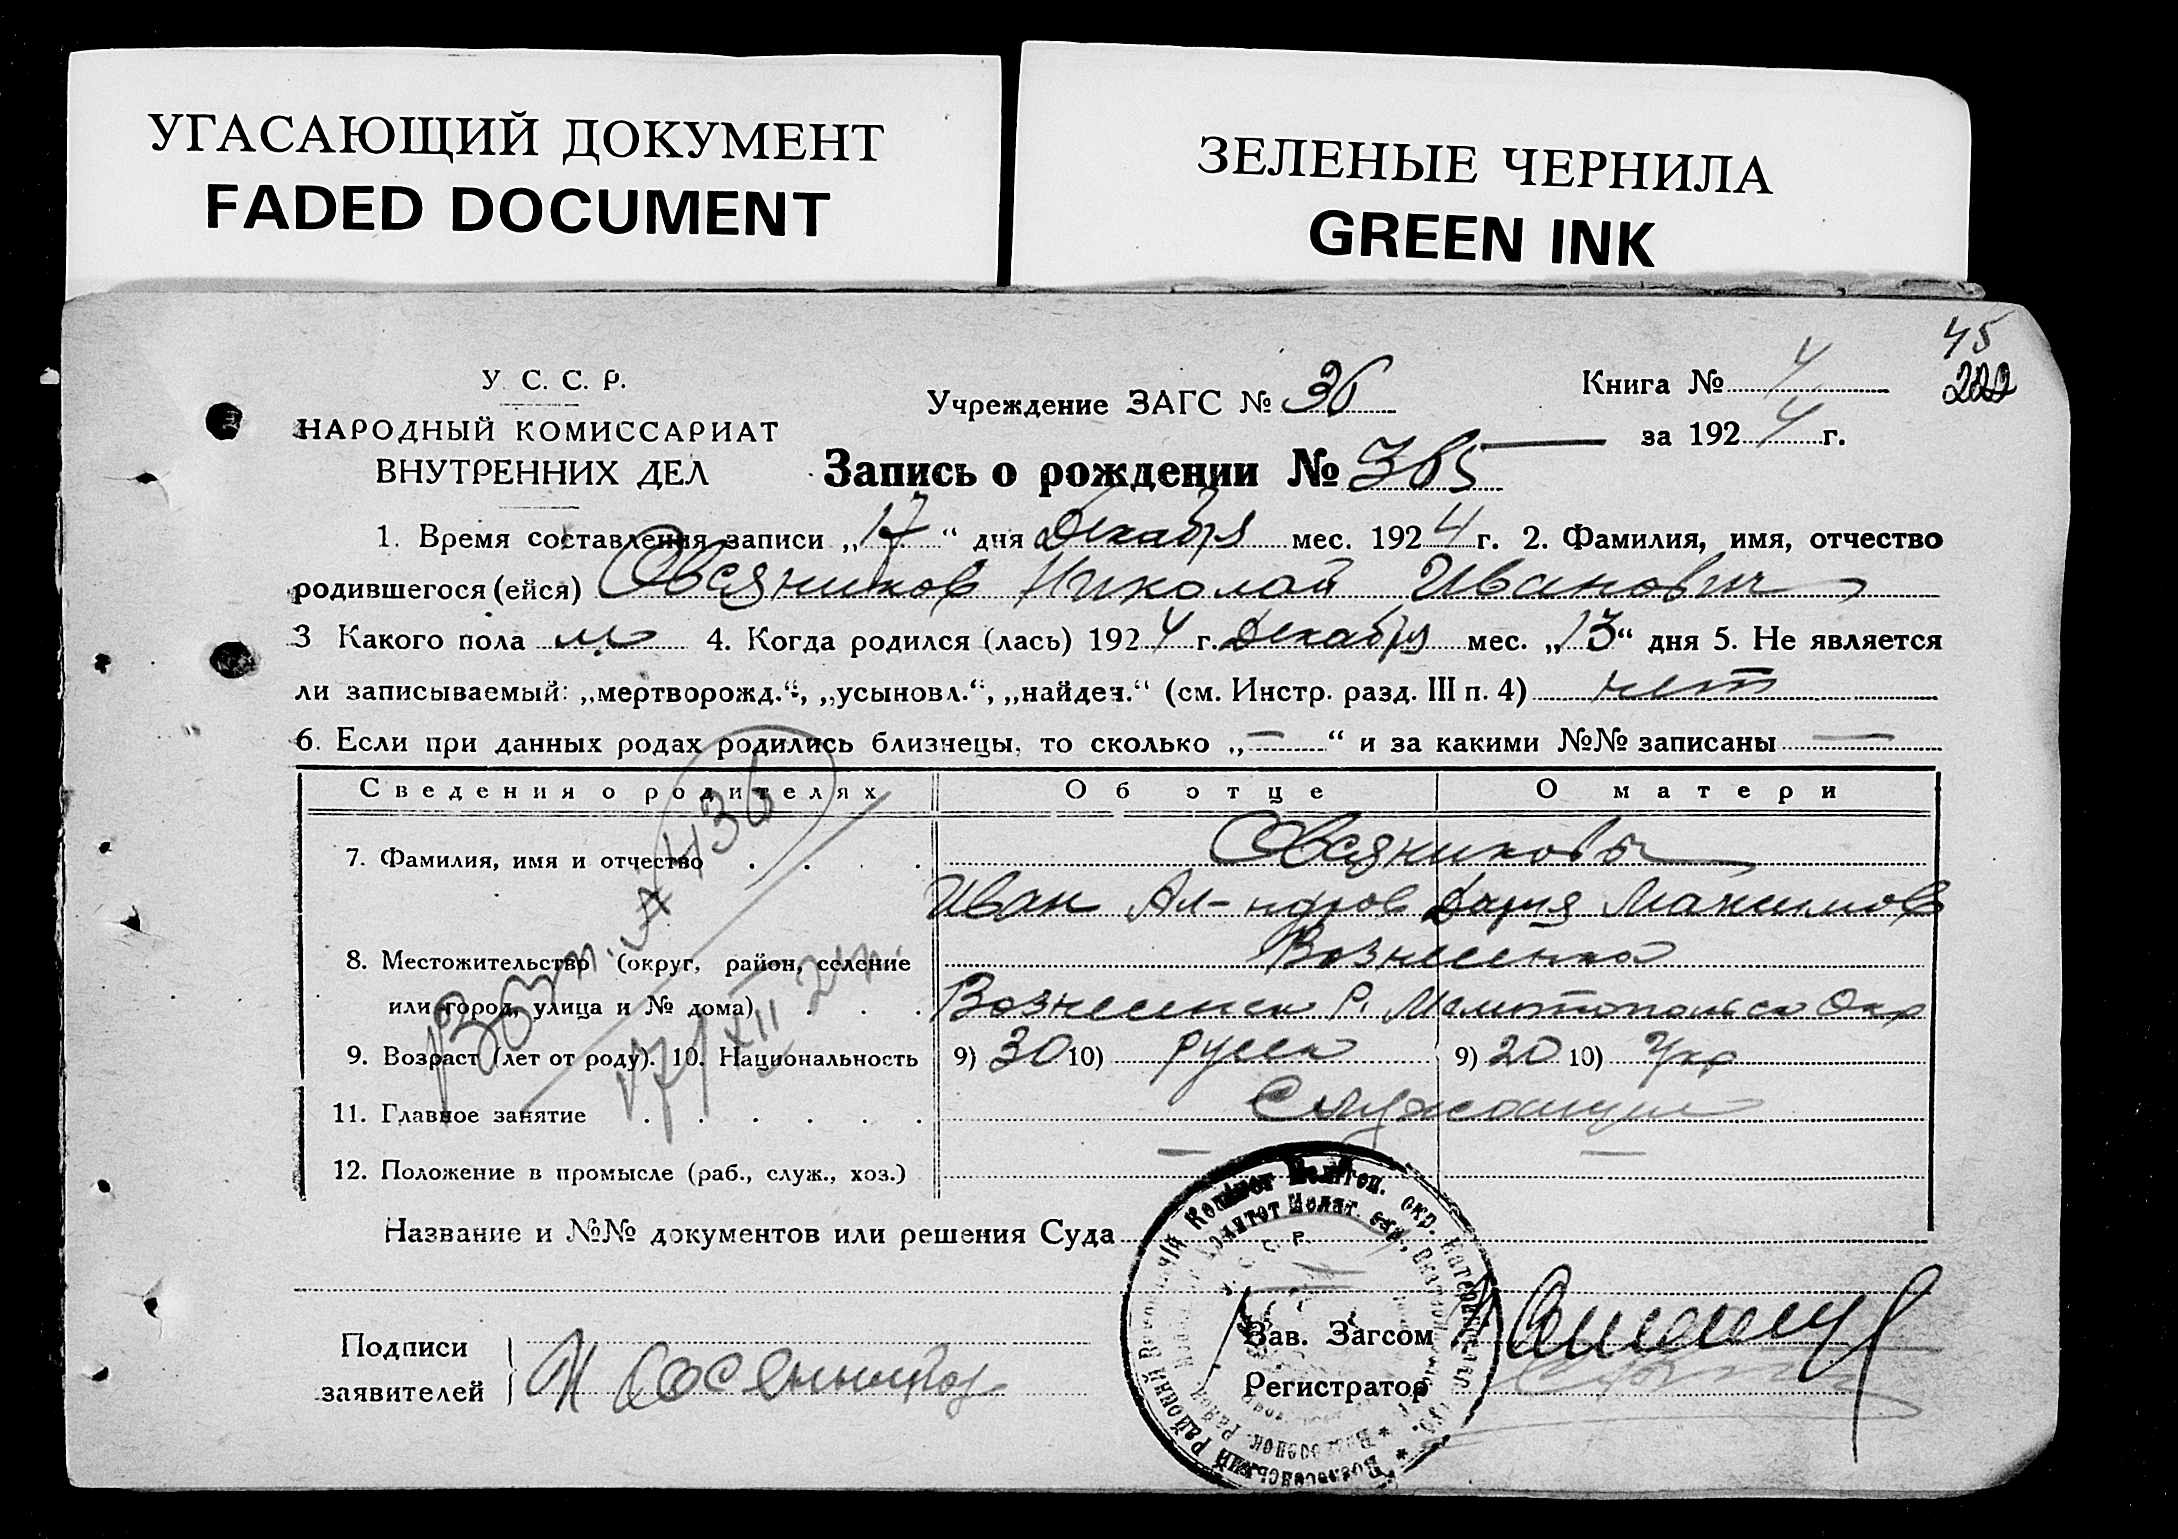 УГАСАЮЩИЙ ДОКУМЕНТ
FADED DOCUMENT
ЗЕЛЕНЫЕ ЧЕРНИЛА
GREEN INK
45
222
У. С. С. Р.
НАРОДНЫЙ КОМИССАРИАТ
ВНУТРЕННИХ ДЕЛ
Учреждение ЗАГС № 36
Книга № 4
за 1924 г.
Запись о рождении № 365
1. Время составления записи „17“ дня Декабря мес. 1924 г. 2. Фамилия, имя, отчество
родившегося (ейся) Овсянников Николай Иванович
3 Какого пола м 4. Когда родился (лась) 1924 г. Декабря мес. „13“ дня 5. Не является
ли записываемый: „мертворожд.“, „усыновл.“, „найден.“ (см. Инстр. разд. III п. 4) нет
6. Если при данных родах родились близнецы, то сколько „—“ и за какими №№ записаны —
Сведения о родителях Об отце О матери
7. Фамилия, имя и отчество Овсянниковы
Иван Ал-ндров Дария Максимов
8. Местожительство (округ, район, селение Вознесенка
или город, улица и № дома) Вознесенск Р. Мелитопольск Окр
9. Возраст (лет от роду). 10. Национальность 9) 30 10) русск 9) 20 10) Укр
11. Главное занятие Служащие
12. Положение в промысле (раб., служ., хоз.) — —
№ 436
17/XII 24
Название и №№ документов или решения Суда
Подписи
заявителей
Зав. Загсом
Регистратор